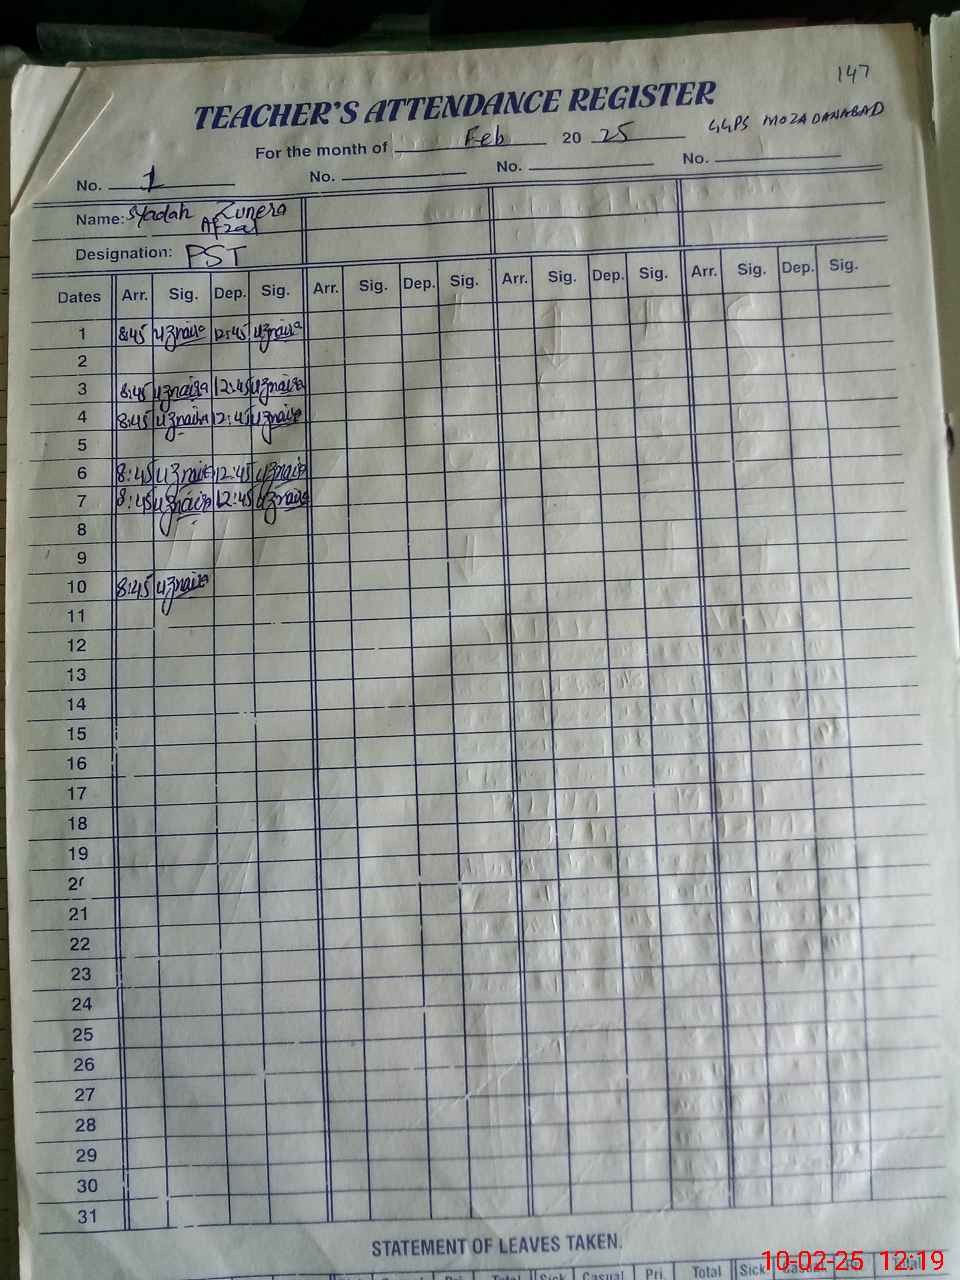 147
TEACHER'S ATTENDANCE REGISTER
For the month of Feb 20 25 GGPS MOZADANABAD
No. 1 No. No. No.
Name: Syadah Zunera
Afzal
Designation: PST
Dates Arr. Sig. Dep. Sig. Arr. Sig. Dep. Sig. Arr. Sig. Dep. Sig. Arr. Sig. Dep. Sig.
1 8:45 12:45
2
3 8:45 12:45
4 8:45 12:45
5
6 8:45 12:45
7 8:45 12:45
8
9
10 8:45
11
12
13
14
15
16
17
18
19
21
22
23
24
25
26
27
28
29
30
31
STATEMENT OF LEAVES TAKEN.
Casual Pri. Total Sick Casual Pri. Total Sick Casual Pri. Total
10-02-25 12:19